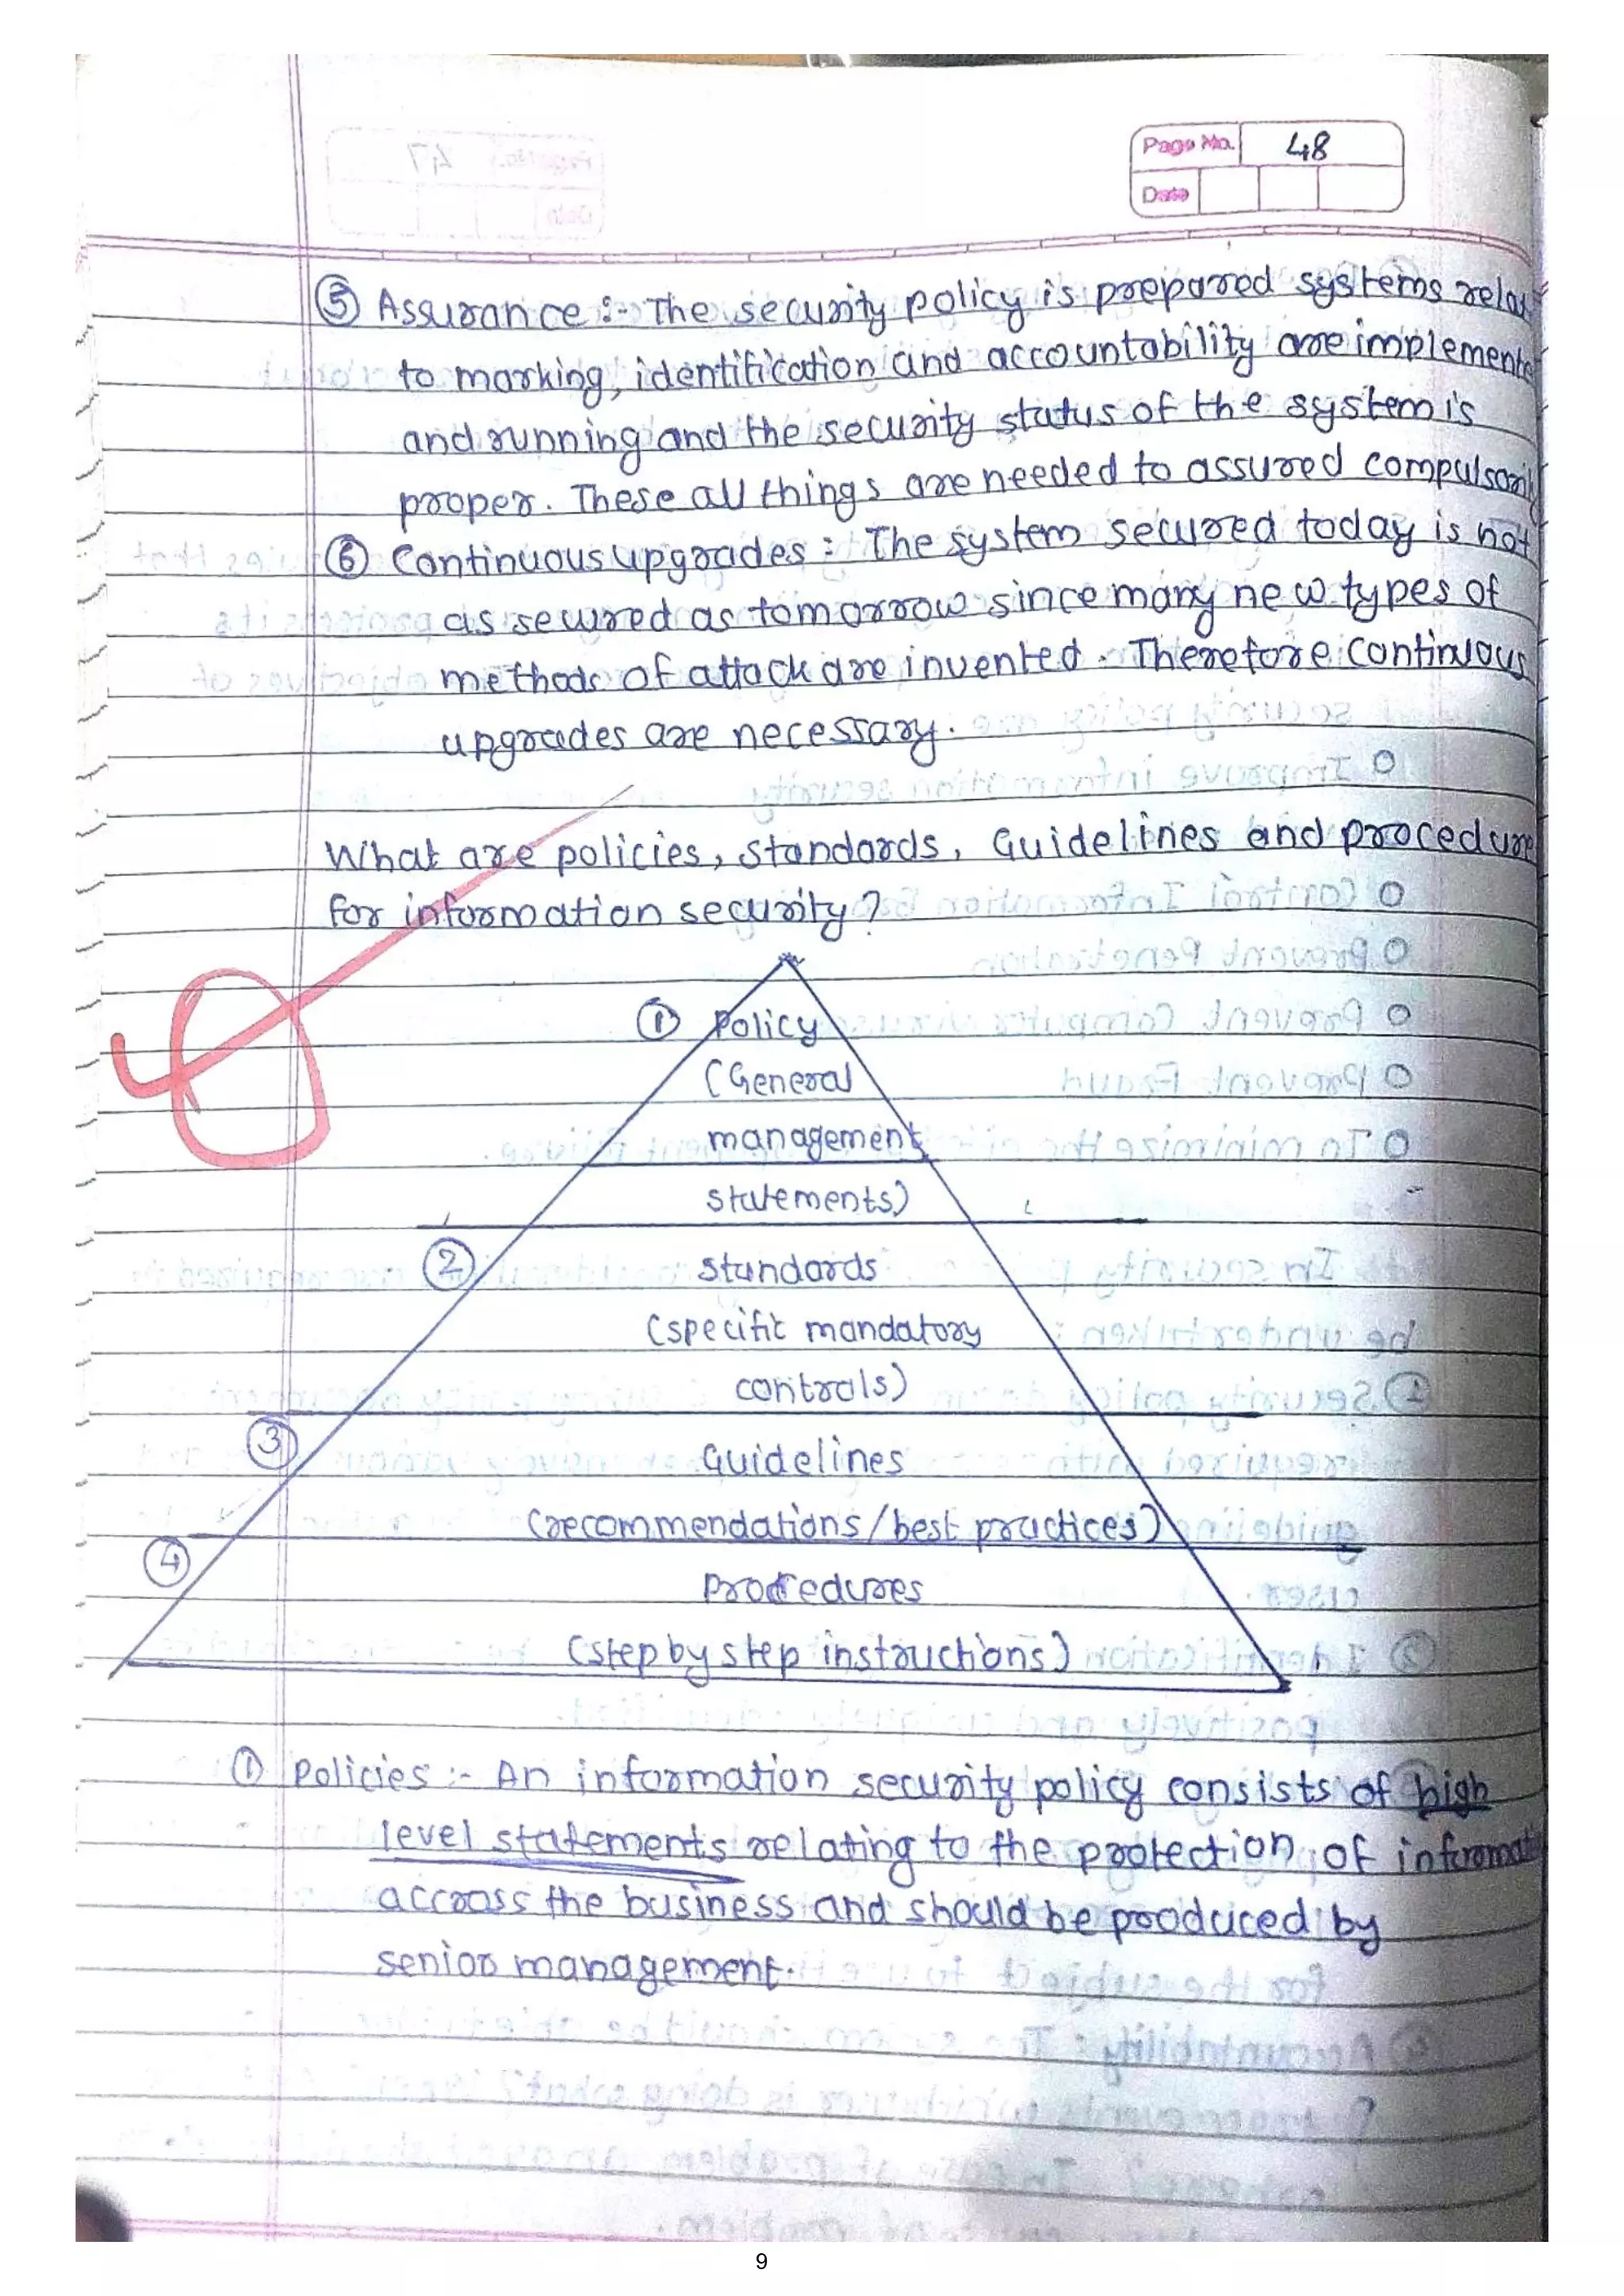 Page No. 48
Date
⑤ Assurance :- The security policy is prepared systems
to marking, identification and accountability are
and running and the security status of the system is
proper. These all things are needed to assured
⑥ Continuous upgrades : The system secured today is not
as secured as tomorrow since many new types of
methods of attack are invented. Therefore continuous
upgrades are necessary.
What are policies, standards, Guidelines and
for information security?
① Policy
(General
management
statements)
② standards
(specific mandatory
controls)
③ Guidelines
(recommendations/best practices)
④ Procedures
(step by step instructions)
① Policies :- An information security policy consists of high
level statements relating to the protection of
accross the business and should be produced by
senior management.
9